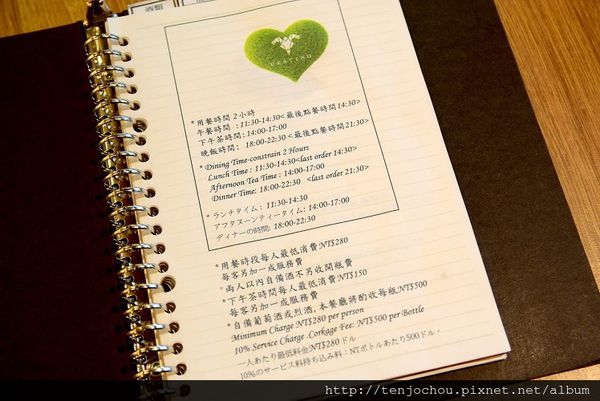 酒類
VERTEND
*用餐時間 2小時
午餐時間 : 11:30-14:30<最後點餐時間14:30>
下午茶時間: 14:00-17:00
晚飯時間: 18:00-22:30 <最後點餐時間21:30>
*Dining Time-constrain 2 Hours
Lunch Time : 11:30-14:30<last order 14:30>
Afternoon Tea Time : 14:00-17:00
Dinner Time: 18:00-22:30 <last order 21:30>
*ランチタイム : 11:30-14:30
アフタヌーンティータイム: 14:00-17:00
ディナーの時間: 18:00-22:30
*用餐時段每人最低消費:NT$280
每客另加一成服務費
*兩人以內自備酒不另收開瓶費
*下午茶時間每人最低消費:NT$150
每客另加一成服務費
*自備葡萄酒或烈酒,本餐廳將酌收每瓶NT$500
Minimum Charge :NT$280 per person
10% Service Charge .Corkage Fee: NT$500 per Bottle
一人あたり最低料金:NT$280ドル
10%のサービス料持ち込み料：NTボトルあたり500ドル・
http://tenjochou.pixnet.net/album